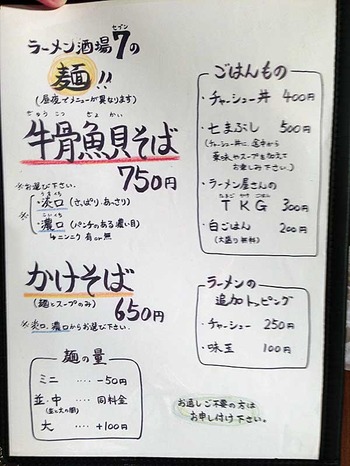 ラーメン酒場7の
セブン
麺!!
(昼夜でメニューが異なります)
ぎゅうこつ ぎょかい
牛骨魚貝そば
750円
※お選び下さい。
うまくち
・淡口(さっぱり、あっさり)
※こいくち
・濃口(パンチのある濃い目)
ニンニク 有or無
かけそば
(麺とスープのみ)
650円
※淡口、濃口からお選び下さい。
麺の量
ミニ ‥‥ -50円
並・中 ‥‥ 同料金
大 ‥‥ +100円
ごはんもの
・チャーシュー丼 400円
・七まぶし 500円
(チャーシュー丼に、途中から
薬味やスープを加えて
お楽しみ下さい。)
・ラーメン屋さんの
たまご かけ ごはん
TKG 300円
・白ごはん 200円
(大盛り無料)
ラーメンの
追加トッピング
・チャーシュー 250円
・味玉 100円
お通しご不要の方は
お申し付け下さい。